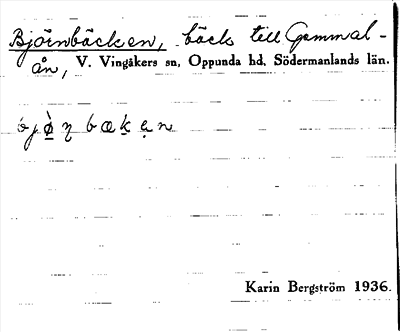 Björnbäcken, bäck till Gammal-
ån, V. Vingåkers sn, Oppunda hd, Södermanlands län.
Karin Bergström 1936.